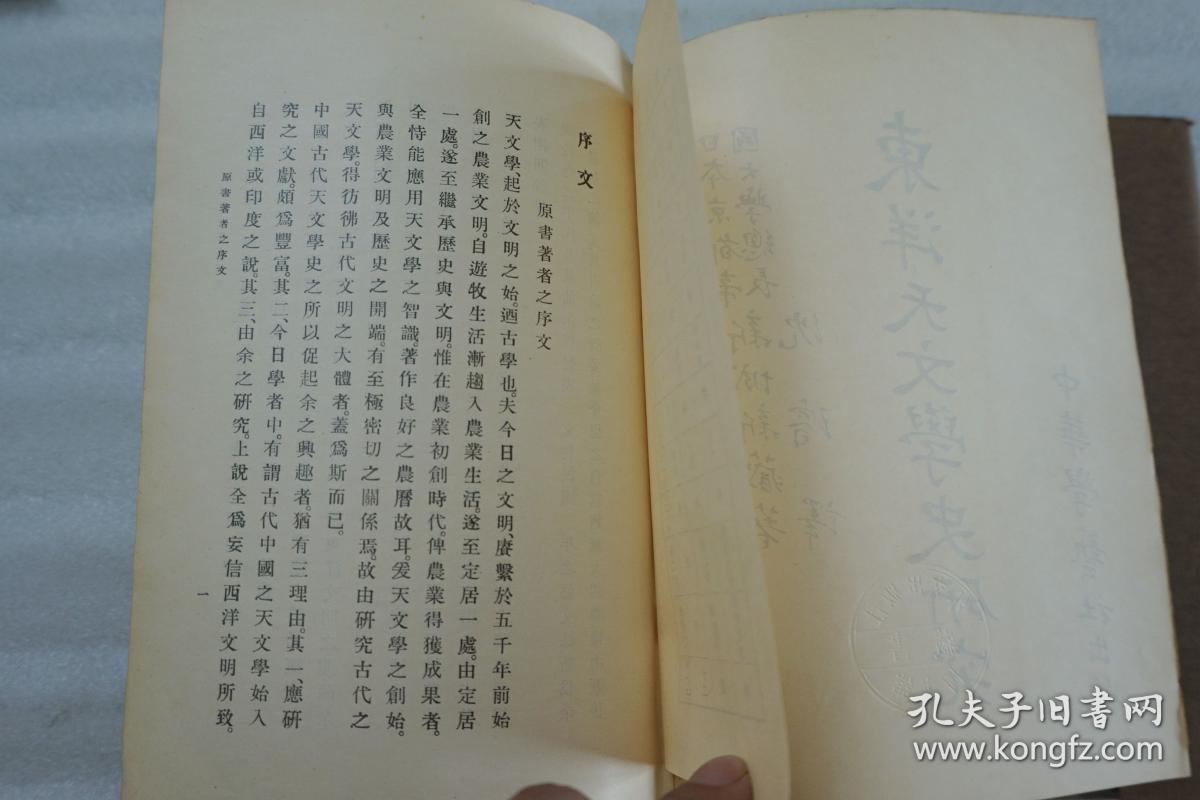 東洋天文學史研究
中華學藝社出
日本京都帝
國大學總長新城新藏著
沈璿譯
序文
原書著者之序文
天文學、起於文明之始。迺古學也。夫今日之文明、賡繫於五千年前始
創之農業文明。自遊牧生活漸趨入農業生活。遂至定居一處。由定居
一處。遂至繼承歷史與文明。惟在農業初創時代。俾農業得獲成果者。
全恃能應用天文學之智識。著作良好之農曆故耳。爰天文學之創始。
與農業文明及歷史之開端。有至極密切之關係焉。故由研究古代之
天文學。得彷彿古代文明之大體者。蓋爲斯而已。
中國古代天文學史之所以促起余之興趣者。猶有三理由。其一、應研
究之文獻。頗爲豐富。其二、今日學者中。有謂古代中國之天文學始入
自西洋或印度之說。其三、由余之研究。上說全爲妄信西洋文明所致。
原書著者之序文
一
孔夫子旧书网
www.kongfz.com